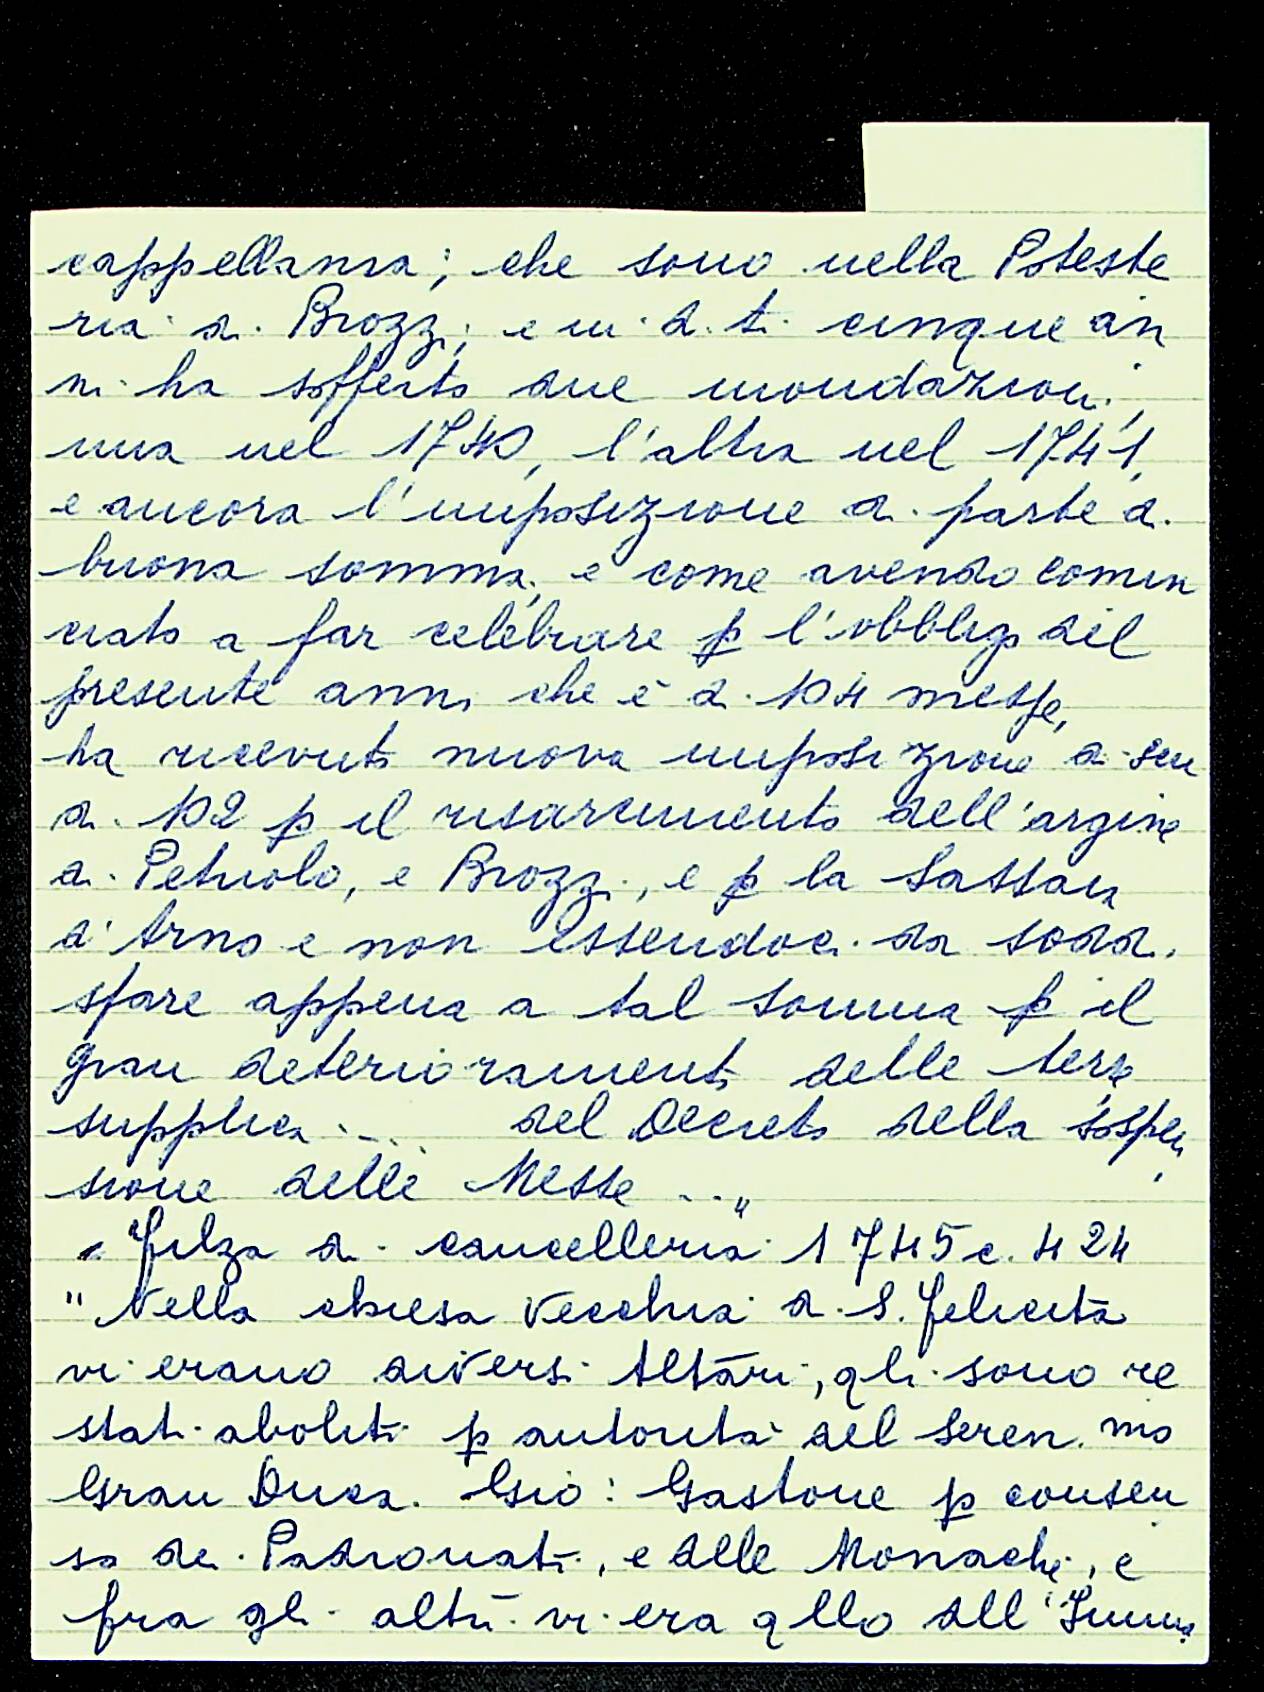 cappellania; che sono nella Poteste
ria di Brozzi; e in d. ti cinque an
ni ha sofferto due inondazioni,
una nel 1740, l'altra nel 1741,
e ancora l'imposizione di parte di
buona somma, e come avendo comin
ciato a far celebrare p l'obbligo del
presente anni che è di 104 messe,
ha ricevuto nuova imposizione di scu
di 102 p il risarcimento dell'argine
di Petriolo, e Brozzi, e p la Sassaia
d'Arno e non essendoci da sodd.
sfare appena a tal somma p il
gran deterioramento delle terre
supplica .... del Decreto della sospen
sione delle Messe ..."
"Filza di cancelleria 1745 c. 424
"Nella chiesa Vecchia di S. Felicita
vi erano diversi Altari, qli sono re
stati aboliti p autorità del Seren.mo
Gran Duca. Gio: Gastone p consen
so dei Padronati, e delle Monache, e
fra gli altri vi era qllo dell'Imma